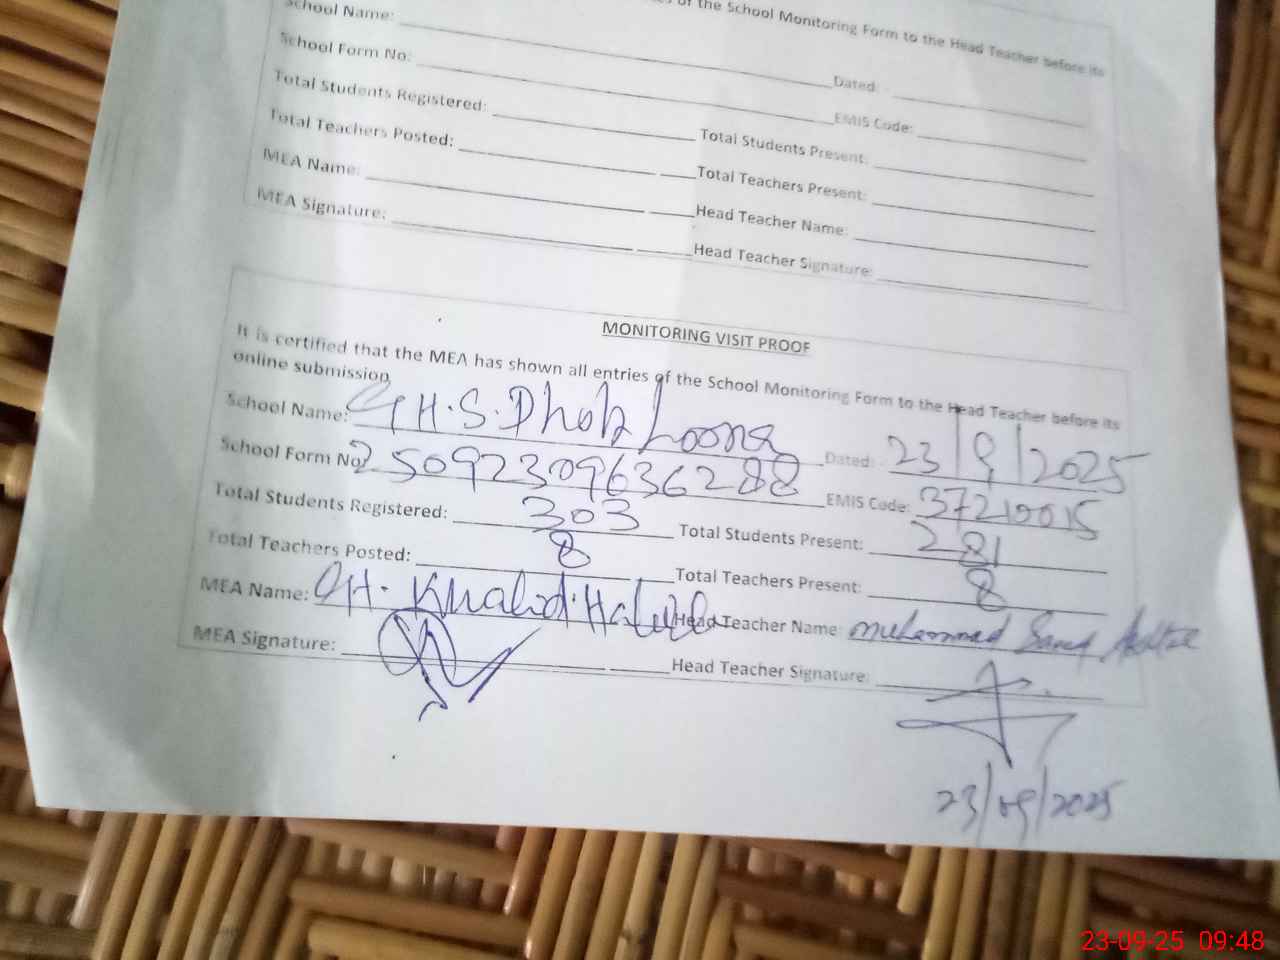 of the School Monitoring Form to the Head Teacher before its
School Name: Dated:
School Form No: EMIS Code:
Total Students Registered: Total Students Present:
Total Teachers Posted: Total Teachers Present:
MEA Name: Head Teacher Name:
MEA Signature: Head Teacher Signature:
MONITORING VISIT PROOF
It is certified that the MEA has shown all entries of the School Monitoring Form to the Head Teacher before its
online submission
School Name: GH.S.Dhok Loona Dated: 23/9/2025
School Form No: 25092309636288 EMIS Code: 37210015
Total Students Registered: 303 Total Students Present: 281
Total Teachers Posted: 8 Total Teachers Present: 8
MEA Name: CH. Khalid Head Teacher Name: Muhammad
MEA Signature: Head Teacher Signature:
23/09/2025
23-09-25 09:48